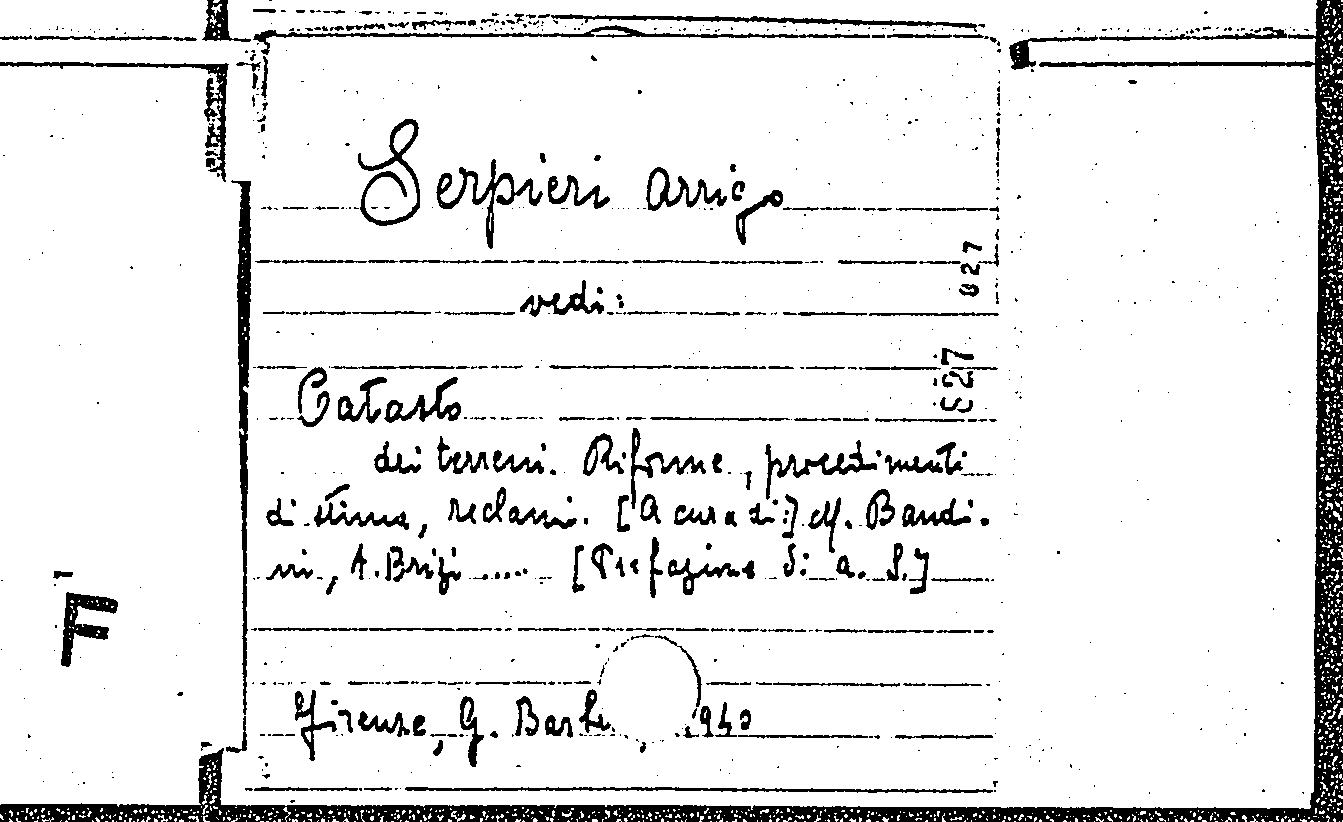 Serpieri Arrigo
027
vedi:
S27
Catasto
dei terreni. Riforme, procedimenti
di stima, reclami. [A cura di:] M. Bandi-
ni, A. Brizi ..... [Prefazione di A. S.]
F
Firenze, G. Barb 940